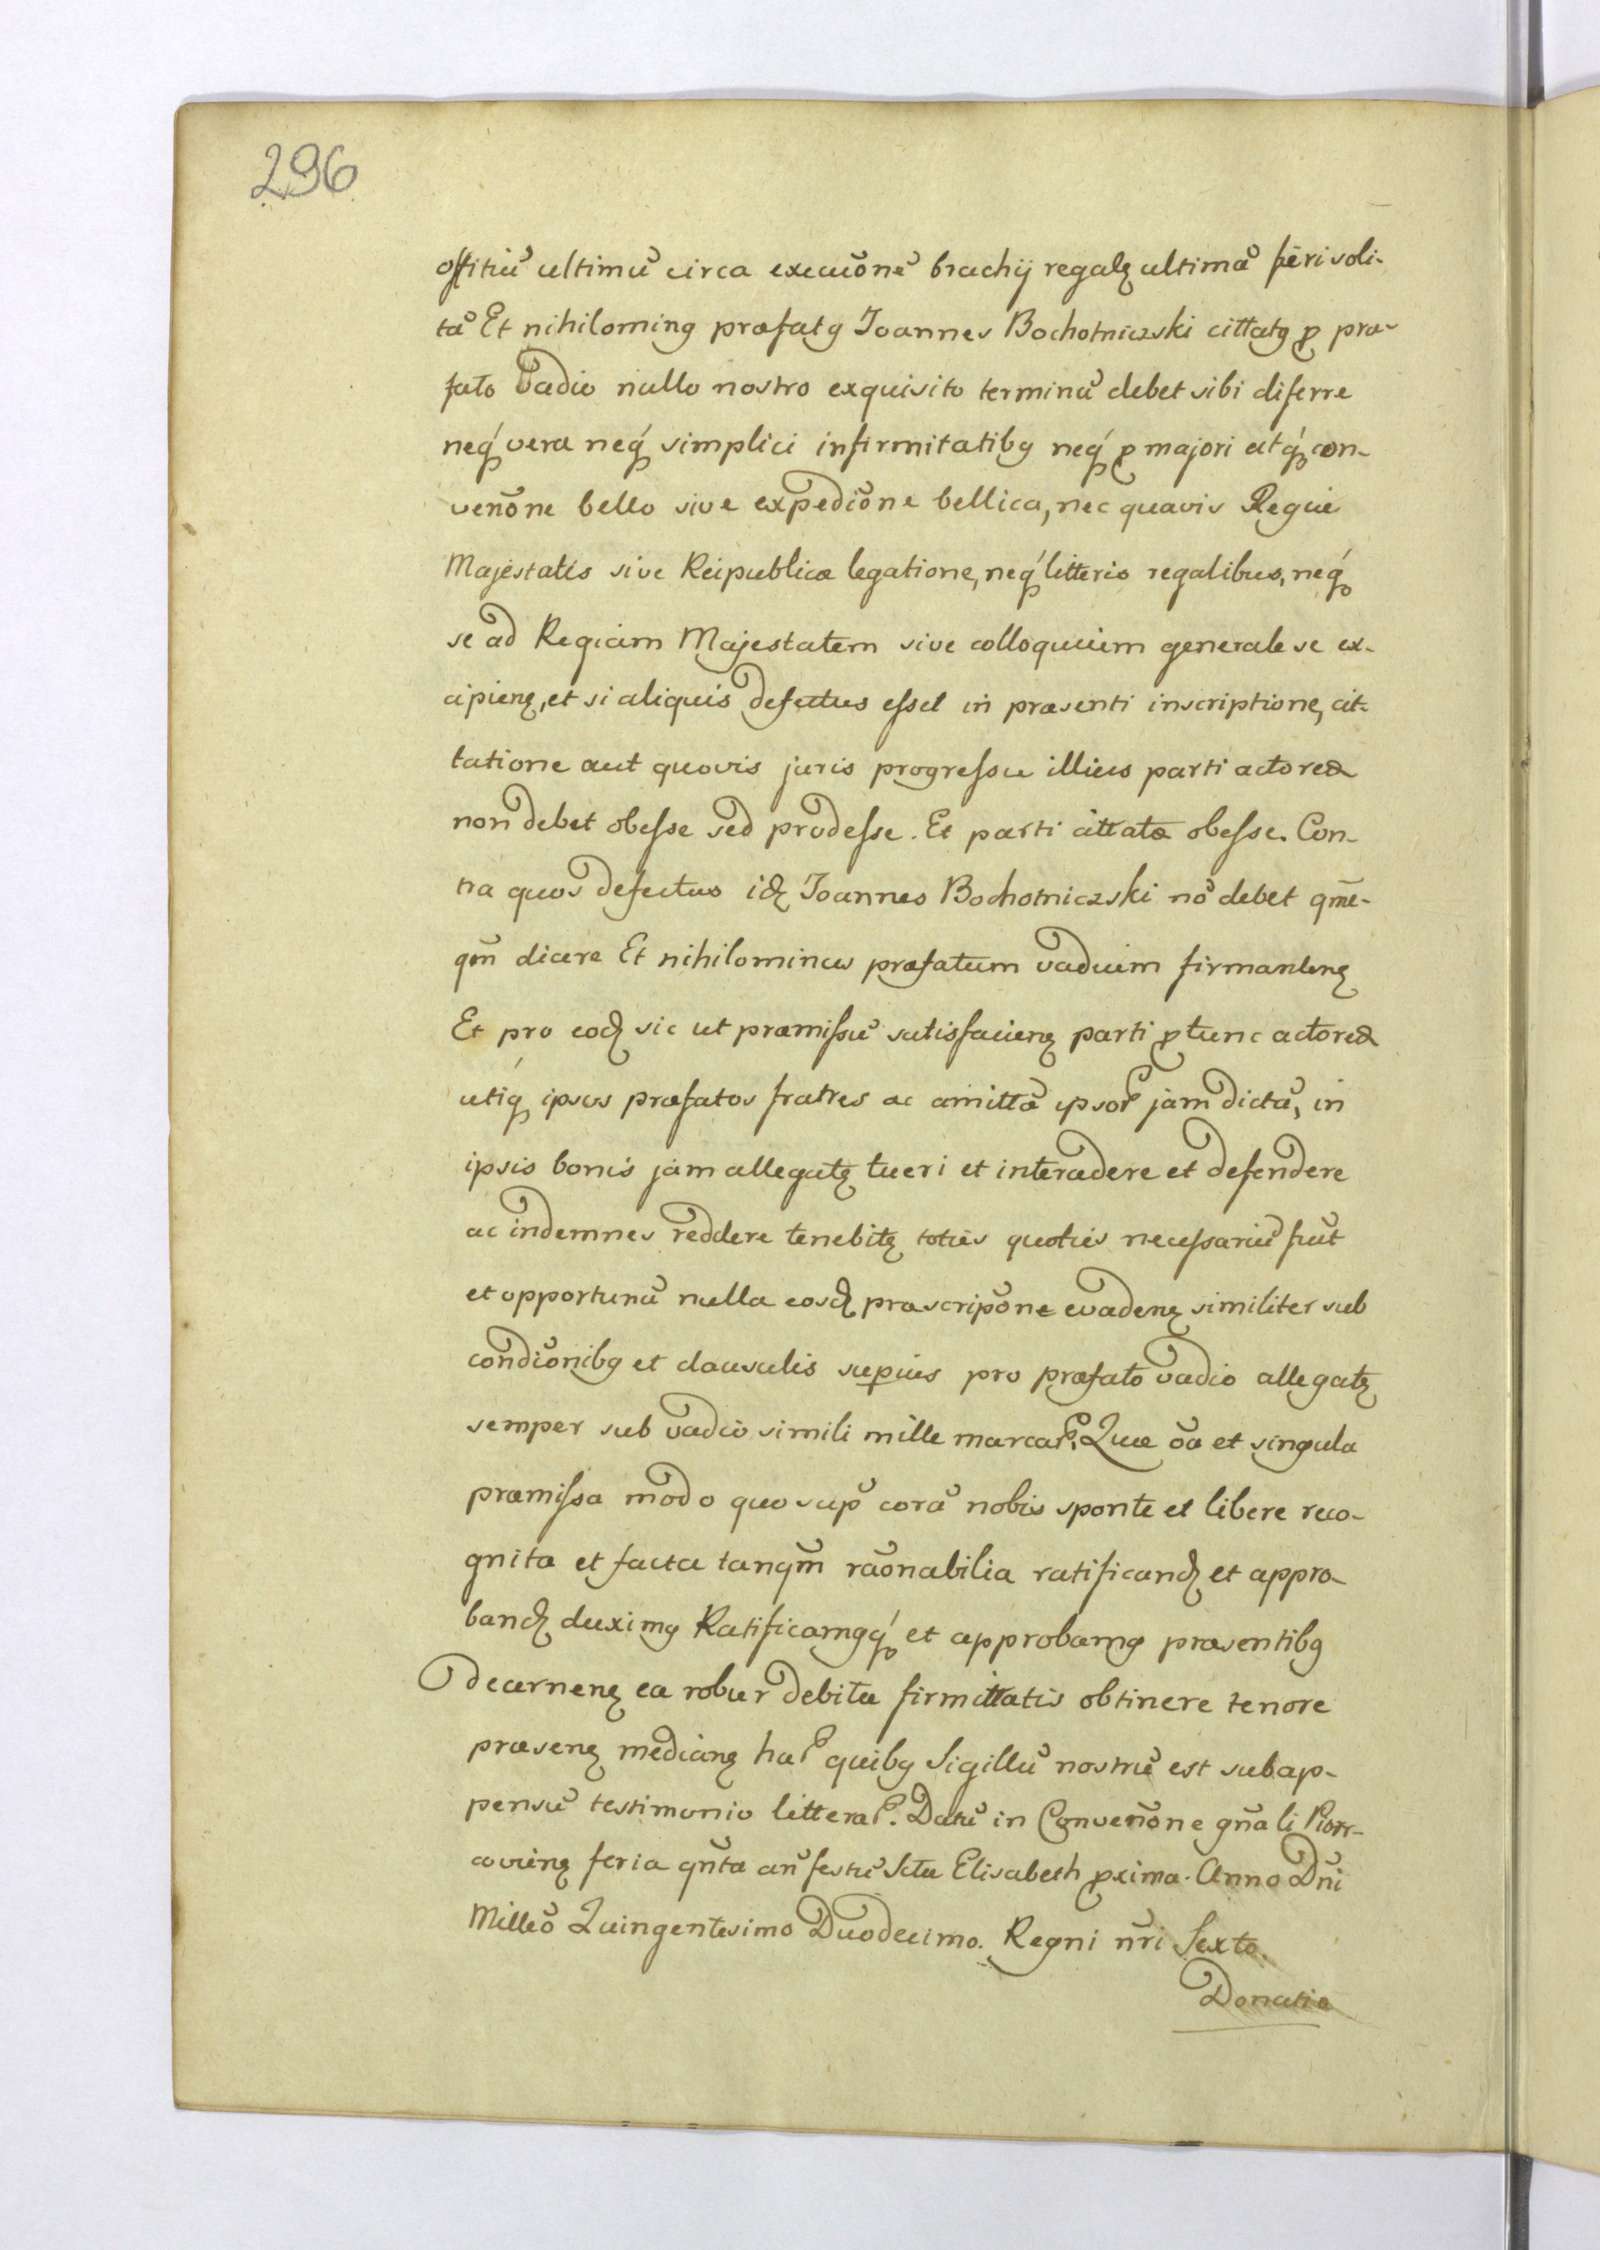 296
offitiũ ultimũ circa execuõnẽ brachij regalꝫ ultimã fieri soli-
tã Et nihilominꝰ præfatꝰ Joannes Bochotniczski cittatꝰ ꝓ præ-
fato Vadio nullo nostro exquisito terminũ debet sibi diferre
neqꝫ vera neqꝫ simplici infirmitatibꝰ neqꝫ ꝓ majori atqꝫ con-
venõne bello sive expediõne bellica, nec quavis Regiæ
Majestatis sive Reipublicæ legatione, neqꝫ litteris regalibus, neqꝫ
se ad Regiam Majestatem sive colloquium generale se ex-
cipienꝫ, et si aliquis defectus esset in præsenti inscriptione, cit-
tatione aut quovis juris progressu illius parti actoreæ
non debet obesse sed prodesse. Et parti cittatæ obesse. Con-
tra quos defectus idꝫ Joannes Bochotniczski nõ debet qm̃e-
qm̃ dicere Et nihilominus præfatum vadium firmantenꝫ
Et pro eodꝫ sic ut præmissũ satisfacienꝫ parti ꝓtunc actoreæ
utiqꝫ ipsos præfatos fratres ac amittã ipsoꝝ jam dictã, in
ipsis bonis jam allegatꝫ tueri et intercedere et defendere
ac indemnes reddere tenebitꝫ toties quoties necessariũ fuit
et opportunũ nulla eosdꝫ præscripõne evadenꝫ similiter sub
condiõnibꝰ et clausulis superius pro præfato vadio allegatꝫ
semper sub vadio simili mille marcaꝝ. Quæ õa et singula
præmissa modo quo sup̃ corã nobis sponte et libere reco-
gnita et facta tanqm̃ raõnabilia ratificandꝫ et appro-
bandꝫ duximꝰ Ratificamꝰqꝫ et approbamꝰ præsentibꝰ
decernenꝫ ea robur debitæ firmittatis obtinere tenore
præsenꝫ medianꝫ haꝝ quibꝰ Sigillũ nostrũ est subap-
pensũ testimonio litteraꝝ. Datũ in Convenõne gñali Piotr-
covienꝫ feria qñta añ festũ Sctæ Elisabeth ꝓxima. Anno Dñi
Milleõ Quingentesimo Duodecimo. Regni ñri Sexto.
Donatio